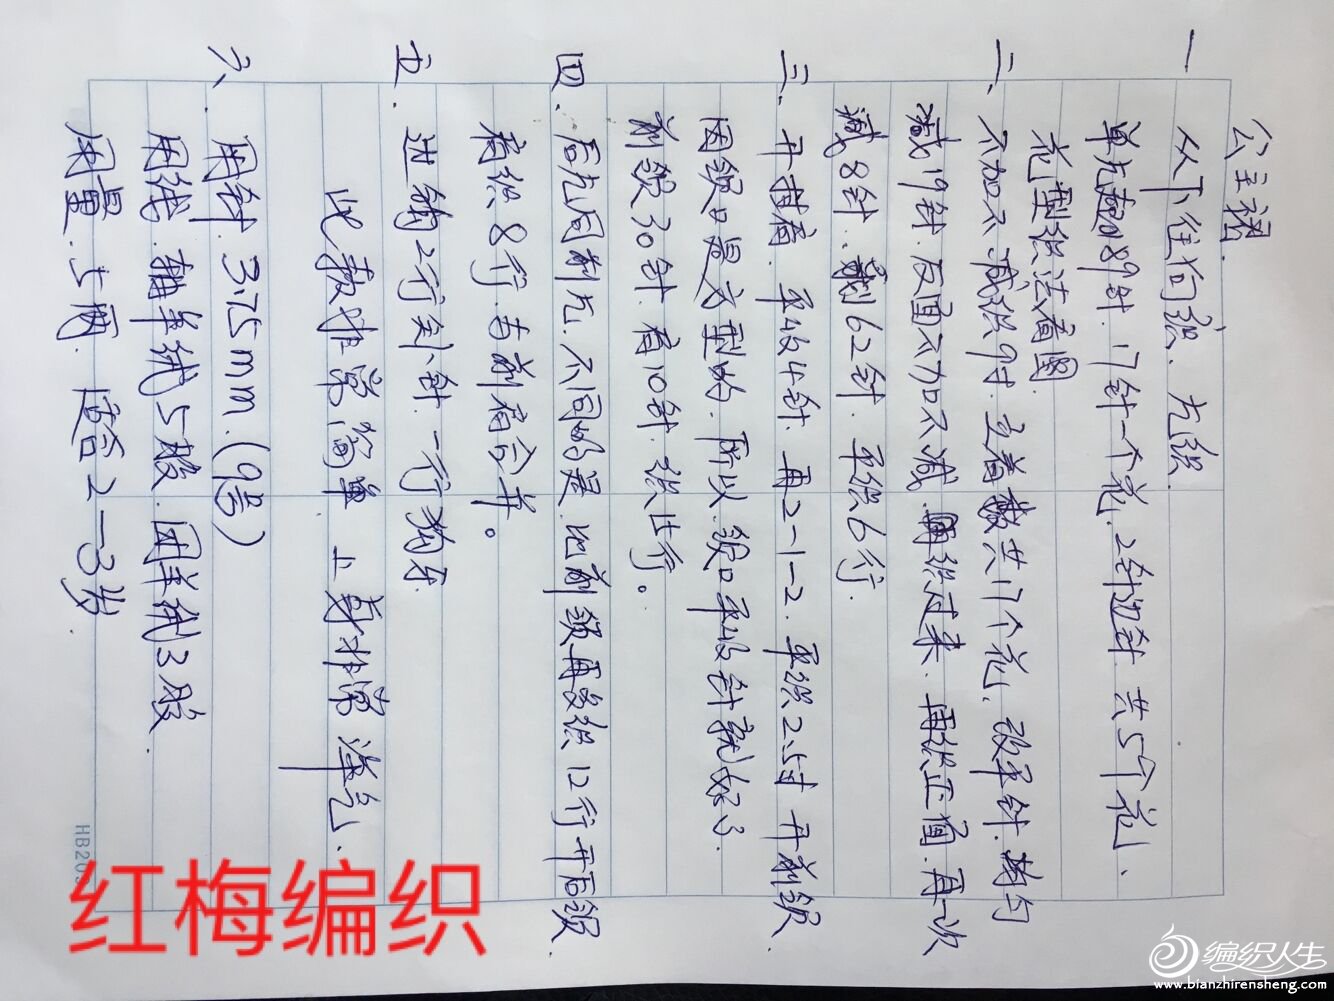 公主裙
一 从下往尚织、片织
单片起89针.17针一个花.2针边针.共5个花、
花型织法看图
二、不加不减织9寸.直着数共17个花.改平针.均匀
减19针.反面不加不减.再织过来.再织正面.再一次
减8针.剩62针.平织6行.
三、开挂肩.平收4针.再2-1-2.平织2.5寸开前领.
因领口是方型的.所以领口平收针就好了.
前领30针.肩10针.织比行。
四、后片同前片.不同的是.比前领再多织12行开后领
肩织8行.与前肩合并。
五、进袖2行短针.一行狗牙.
此款非常简单 上身非常洋气、
六、用针 3.75mm.(9号)
用线.羊绒5股.羊绒3股.
用量.5两.适合2-3岁.
HB20
红梅编织
编织人生
www.bianzhirensheng.com